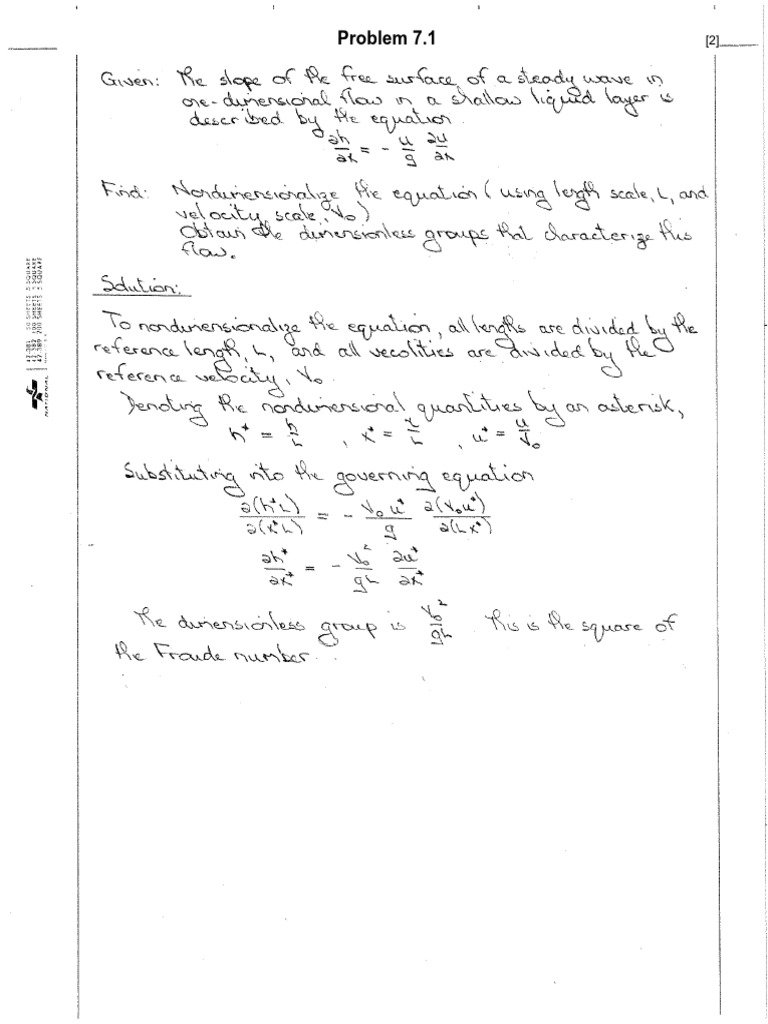 Problem 7.1
[2]
Given: The slope of the free surface of a steady wave in
one-dimensional flow in a shallow liquid layer is
described by the equation
∂h/∂x = - u/g ∂u/∂x
Find: Nondimensionalize the equation (using length scale, L, and
velocity scale, V₀)
Obtain the dimensionless groups that characterize this
flow.
Solution:
To nondimensionalize the equation, all lengths are divided by the
reference length, L, and all vecolities are divided by the
reference velocity, V₀.
Denoting the nondimensional quantities by an asterisk,
h* = h/L , x* = x/L , u* = u/V₀
Substituting into the governing equation
∂(h*L)/∂(x*L) = - V₀u*/g ∂(V₀u*)/∂(Lx*)
∂h*/∂x* = - V₀²/gL ∂u*/∂x*
The dimensionless group is V₀²/gL This is the square of
the Froude number.
NATIONAL